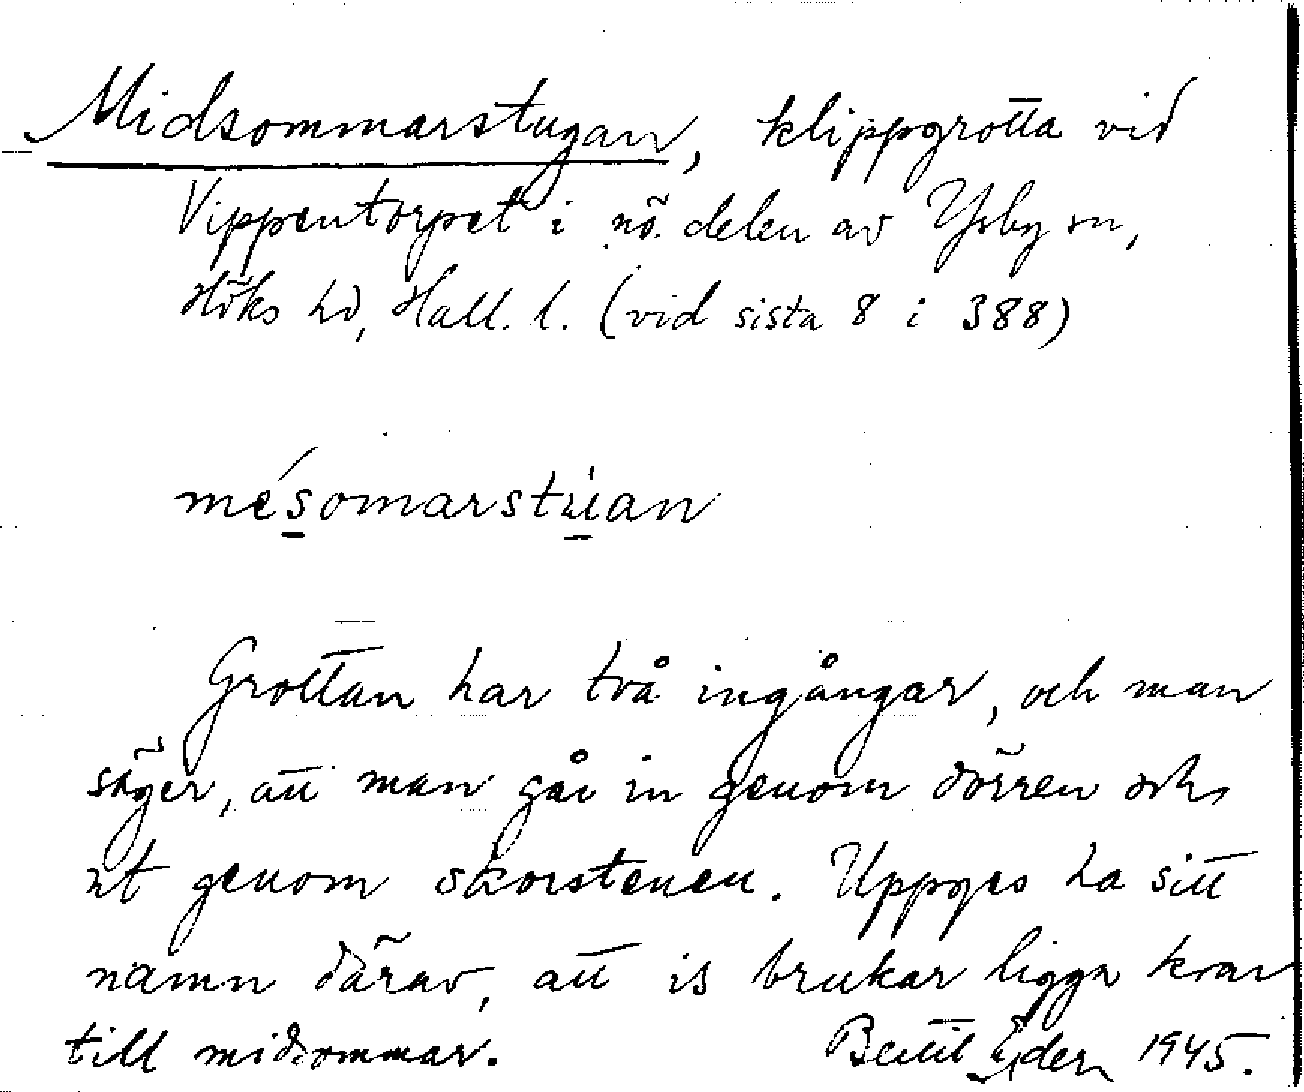 Midsommarstugan, klippgrotta vid
Vippentorpet i nö. delen av Ysby sn,
Höks hd, Hall. l. (vid sista 8 i 388)
mésomarstúan
Grottan har två ingångar, och man
säger, att man går in genom dörren och
ut genom skorstenen. Uppges ha sitt
namn därav, att is brukar ligga kvar
till midsommar.
1945.